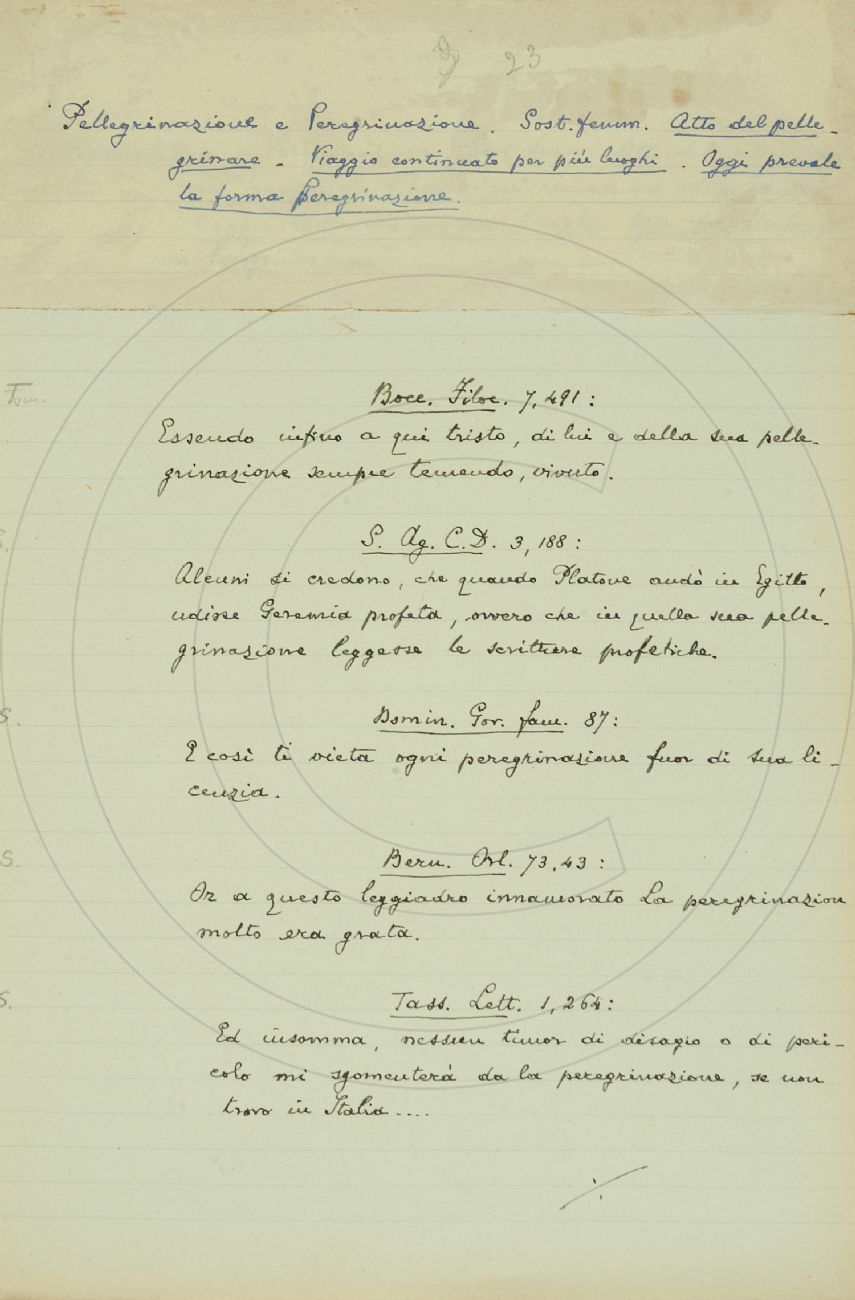 23
Pellegrinazione e Peregrinazione. Sost. femm. Atto del pelle-
grinare. Viaggio continuato per più luoghi. Oggi prevale
la forma Peregrinazione.
Bocc. Filoc. 7, 491:
Essendo infino a qui tristo, di lui e della sua pelle-
grinazione sempre temendo, vivuto.
S. Ag. C. D. 3, 188:
Alcuni si credono, che quando Platone andò in Egitto,
udisse Geremia profeta, ovvero che in quella sua pelle-
grinazione leggesse le scritture profetiche.
S.
Domin. Gov. fam. 87:
E così ti vieta ogni peregrinazione fuor di sua li-
cenzia.
S.
Bern. Orl. 73, 43:
Or a questo leggiadro innamorato La peregrinazion
molto era grata.
S.
Tass. Lett. 1, 264:
Ed insomma, nessun timor di disagio o di peri-
colo mi sgomenterà da la peregrinazione, se non
trovo in Italia....
./.